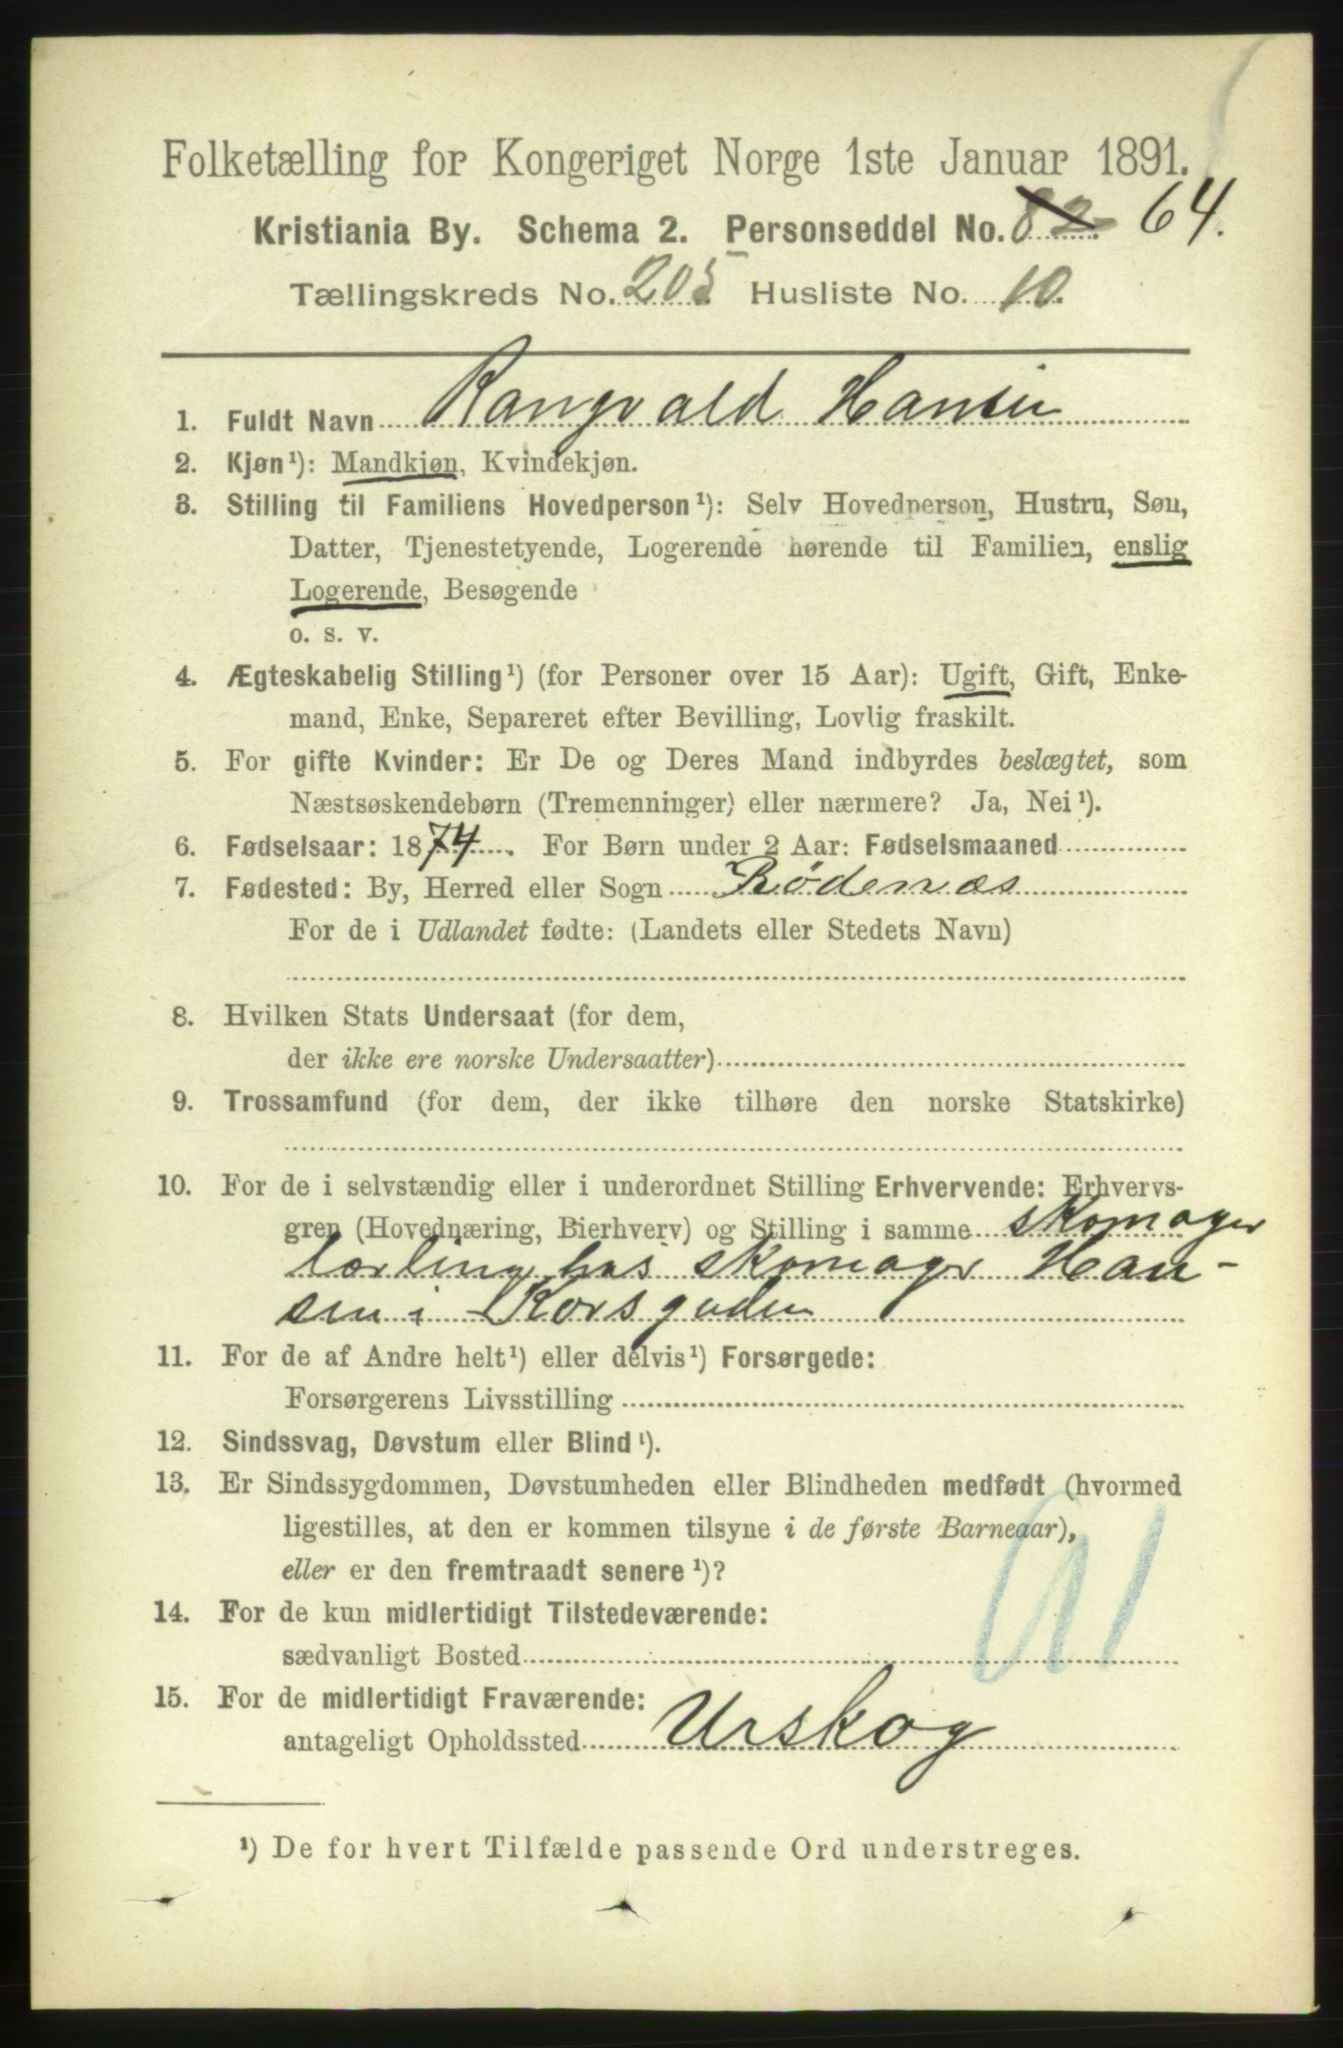 Folketælling for Kongeriget Norge 1ste Januar 1891.
Kristiania By. Schema 2. Personseddel No. 82 64.
Tællingskreds No. 205 Husliste No. 10.
1. Fuldt Navn Rangvald Hansen
2. Kjøn¹): Mandkjøn, Kvindekjøn.
3. Stilling til Familiens Hovedperson¹): Selv Hovedperson, Hustru, Søn,
Datter, Tjenestetyende, Logerende hørende til Familien, enslig
Logerende, Besøgende
o. s. v.
4. Ægteskabelig Stilling¹) (for Personer over 15 Aar): Ugift, Gift, Enke-
mand, Enke, Separeret efter Bevilling, Lovlig fraskilt.
5. For gifte Kvinder: Er De og Deres Mand indbyrdes beslægtet, som
Næstsøskendebørn (Tremenninger) eller nærmere? Ja, Nei¹).
6. Fødselsaar: 1874. For Børn under 2 Aar: Fødselsmaaned
7. Fødested: By, Herred eller Sogn Rødenæs
For de i Udlandet fødte: (Landets eller Stedets Navn)
8. Hvilken Stats Undersaat (for dem,
der ikke ere norske Undersaatter)
9. Trossamfund (for dem, der ikke tilhøre den norske Statskirke)
10. For de i selvstændig eller i underordnet Stilling Erhvervende: Erhvervs-
gren (Hovednæring, Bierhverv) og Stilling i samme skomager
lærling hos skomager Han-
sen i Korsgaden
11. For de af Andre helt¹) eller delvis¹) Forsørgede:
Forsørgerens Livsstilling
12. Sindssvag, Døvstum eller Blind¹).
13. Er Sindssygdommen, Døvstumheden eller Blindheden medfødt (hvormed
ligestilles, at den er kommen tilsyne i de første Barneaar),
eller er den fremtraadt senere¹)?
14. For de kun midlertidigt Tilstedeværende:
sædvanligt Bosted
15. For de midlertidigt Fraværende:
antageligt Opholdssted Urskog
¹) De for hvert Tilfælde passende Ord understreges.